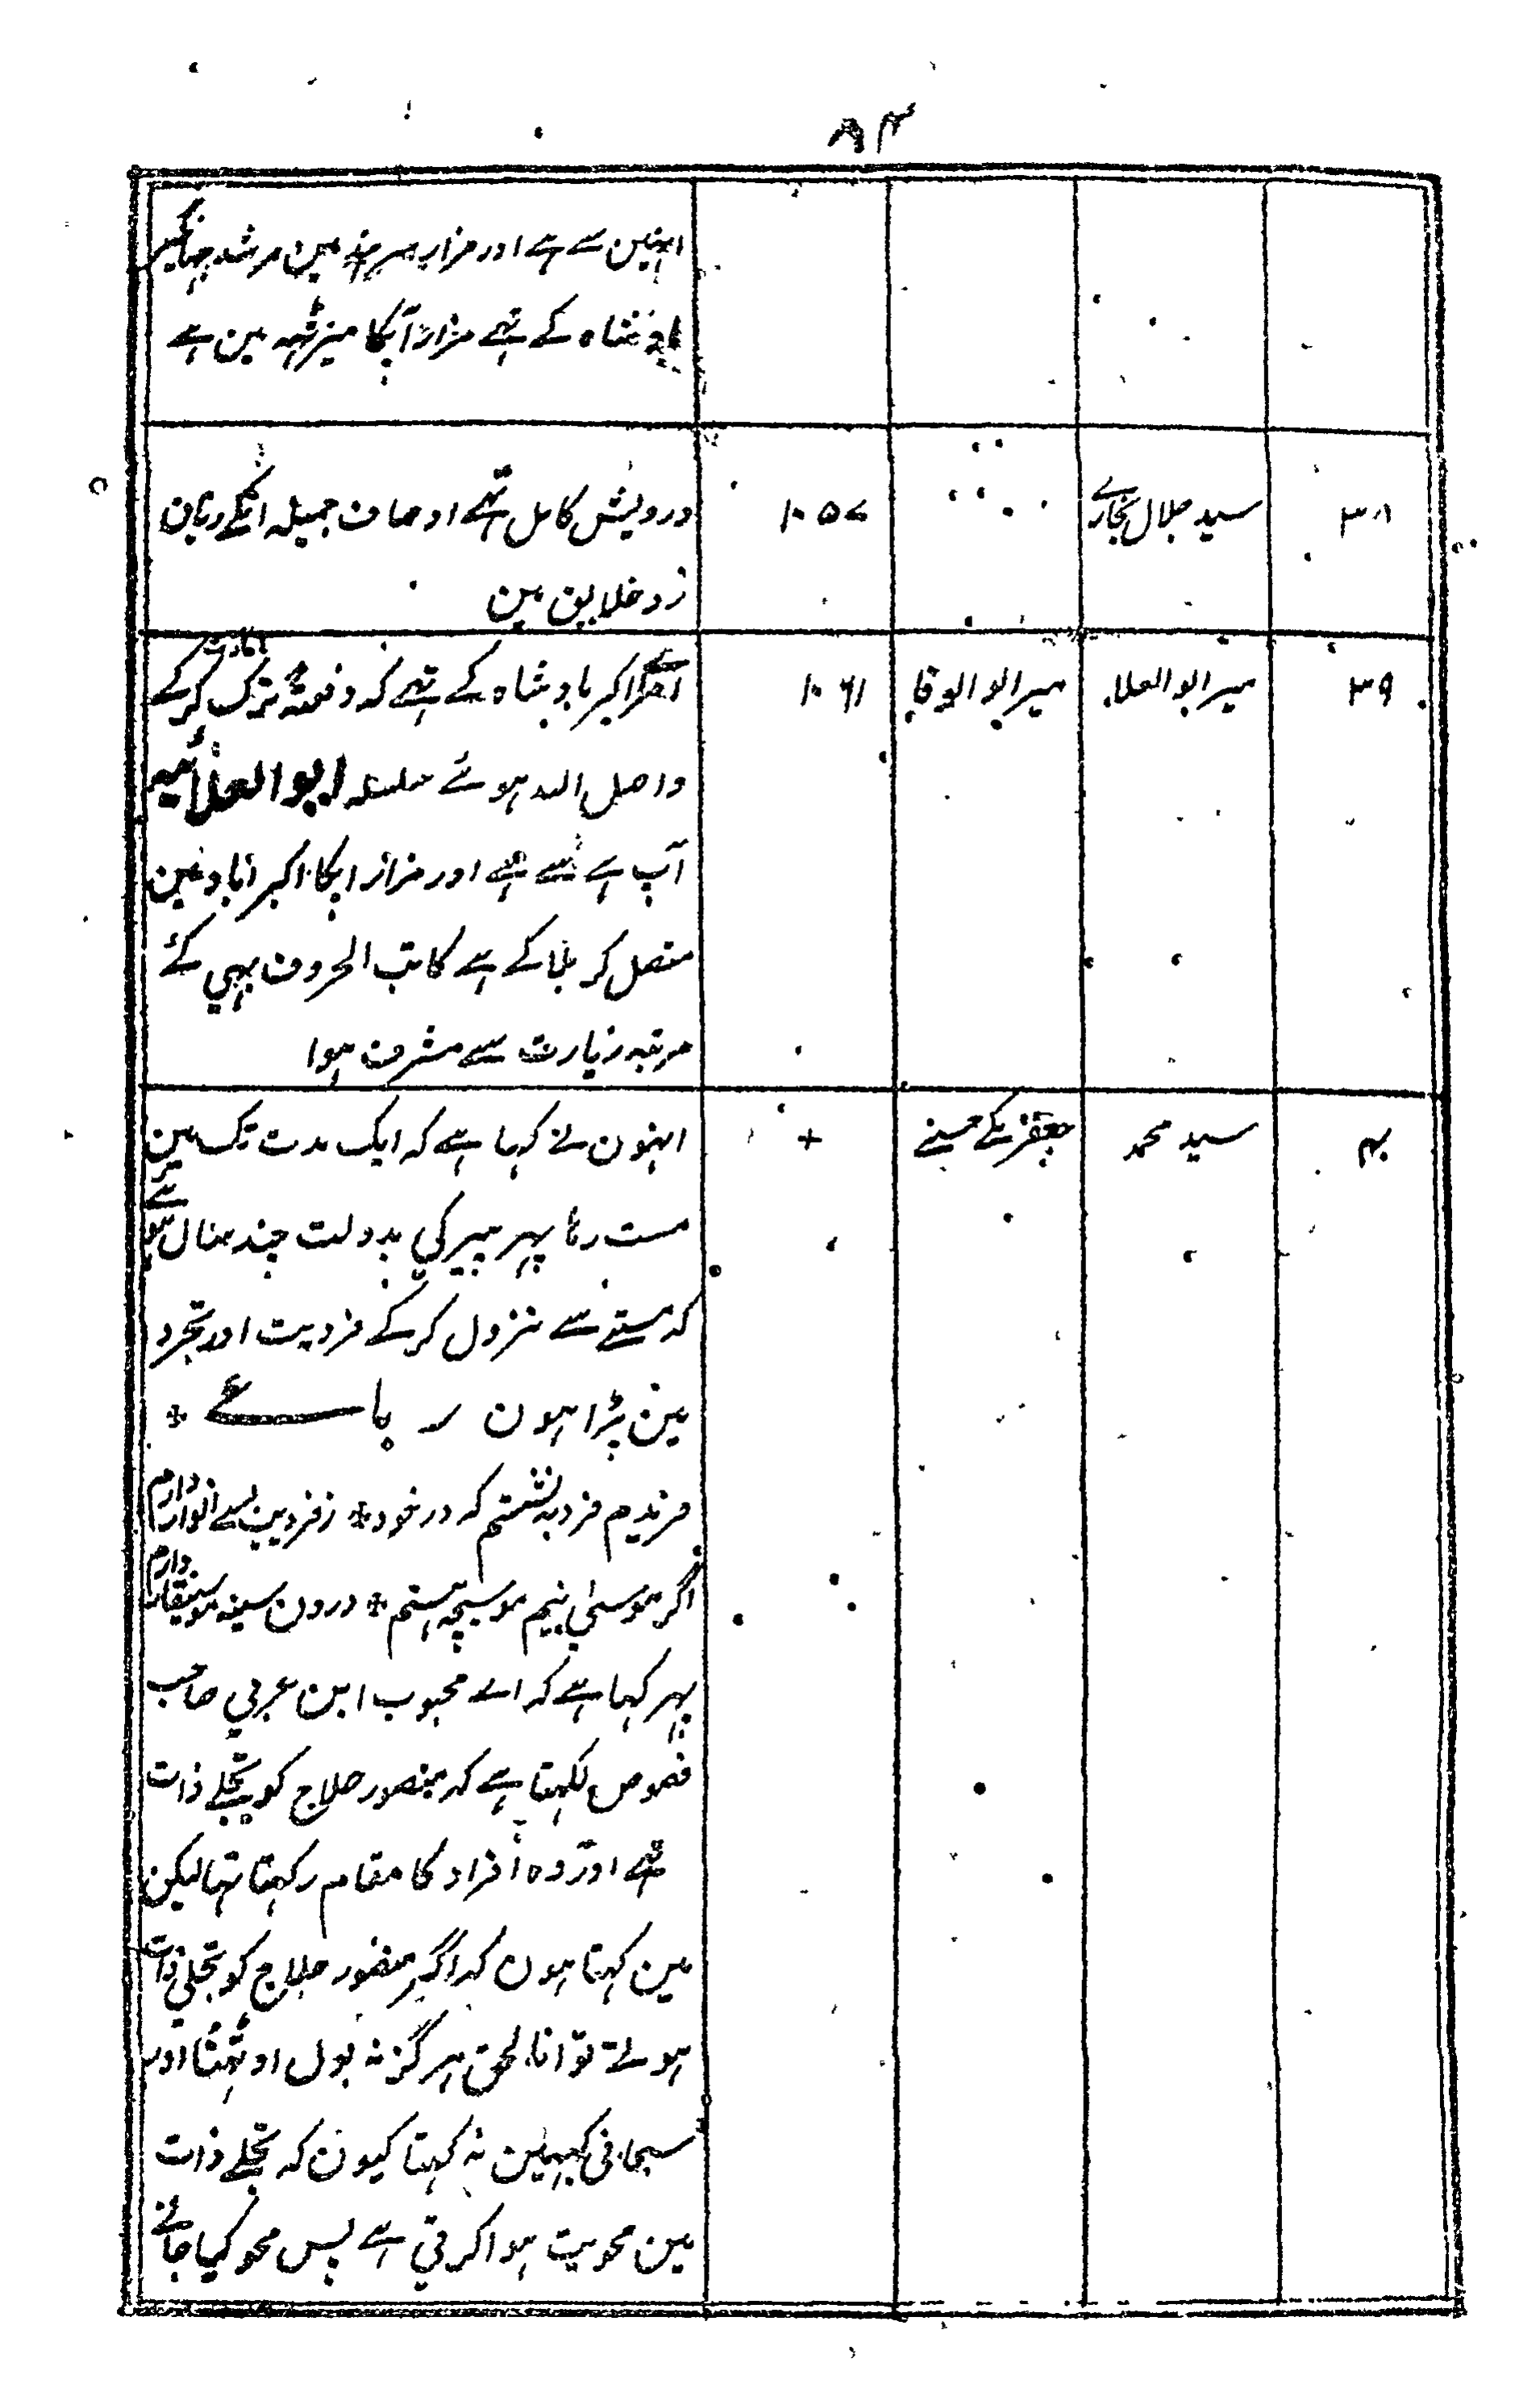 ۸۴
انہین سے ہے اور مزار سرہند مین مرشد جہانگیر
بادشاہ کے تہے مزار آپکا میرٹہہ مین ہے
۳۸ سید جلال بخاری ۱۰۵۷ درویش کامل تہے اوصاف جمیلہ انکے زبان
زد خلایق ہین
۳۹ میر ابو العلا میر ابو الوفا ۱۰۶۱ اکبر بادشاہ کے تہے کہ دفعتہً ترک کرکے
واصل الله ہوئے سلسلہ ابو العلائیہ
آپ ہے سے ہے اور مزار اپکا اکبر اباد مین
متصل کربلا کے ہے کاتب الحروف بہی کئے
مرتبہ زیارت سے مشرف ہوا
۴۰ سید محمد جعفر مکے حسینے + انہون نے کہا ہے کہ ایک مدت تک مین
مست رہا پہر پیر کی بدولت چند سال ہوئے
کہ مستے سے نزول کرکے فردیت اور تجرد
مین پڑا ہون رباعے +
فریدم فرد بنشستم کہ در خود + ز فردیت بسے انوار دارم
اگر موسیٰ نیم موسیچہ ہستم + درون سینہ موسیقار دارم
پہر کہا ہے کہ اے محبوب ابن عربی صاحب
فصوص لکہتا ہے کہ منصور حلاج کو تجلے ذات
تہے اور وہ افراد کا مقام رکہتا تہا لیکن
مین کہتا ہون کہ اگر منصور حلاج کو تجلی ذات
ہوتے تو انا لحق ہرگز نہ بول اوٹہتا اور
سبحانی کہیںن نہ کہتا کیون کہ تجلے ذات
مین محویت ہوا کرتی ہے پس محو کیا جانے